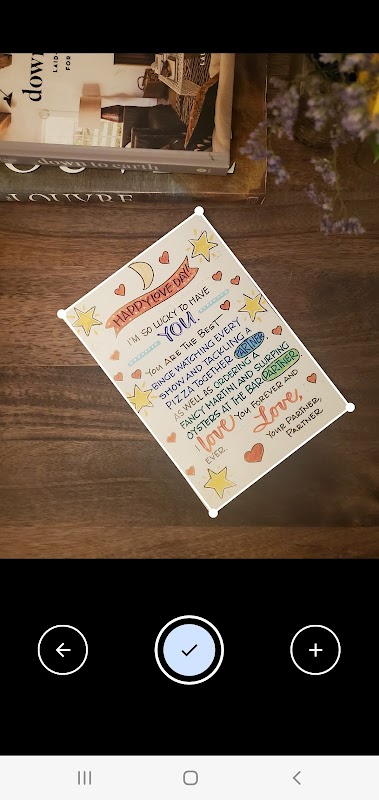 down
LAID-
FOR
down to earth
LOUVRE
HAPPY LOVE DAY!
I'M SO LUCKY TO HAVE
YOU.
YOU ARE THE BEST
BINGE WATCHING EVERY
SHOW AND TACKLING A
PIZZA TOGETHER PARTNER
AS WELL AS ORDERING A
FANCY MARTINI AND SLURPING
OYSTERS AT THE BAR PARTNER
I love YOU FOREVER AND
EVER.
Love,
YOUR PARTNER,
PARTNER